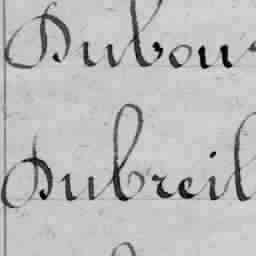 Dubou
Dubreil